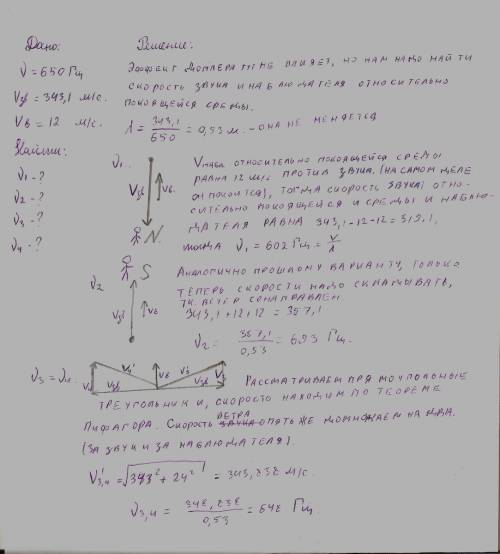 Дано:
Решение:
ν = 650 Гц
Vзв = 343,1 м/с.
Vв = 12 м/с.
Найти:
ν1 - ?
ν2 - ?
ν3 - ?
ν4 - ?
Эффект Доплера тут не влияет, но нам надо найти
скорость звука и наблюдателя относительно
покоящейся среды.
λ = 343,1/650 = 0,53 м. - она не меняется
ν1.
Vзв
Vв.
N.
Vнабл относительно покоящейся среды
равна 12 м/с против звука. (На самом деле
он покоится), тогда скорость звука отно-
сительно покоящейся и среды и наблю-
дателя равна 343,1-12-12=319,1,
тогда ν1 = 602 Гц = V/λ
ν2
S
Vзв
Vв
Аналогично прошлому варианту, только
теперь скорости надо складывать,
т.к. ветер сонаправлен
343,1+12+12=367,1
ν2 = 367,1/0,53 = 693 Гц.
ν3 = ν4.
Vв Vзв V' Vв V' Vзв V
Рассматриваем прямоугольные
треугольники, скорость находим по теореме
ветра
Пифагора. Скорость звука опять же домножаем на два.
(за звук и за наблюдателя).
V'3,4 = √343² + 24² = 343,838 м/с.
ν3,4 = 343,838/0,53 = 648 Гц.